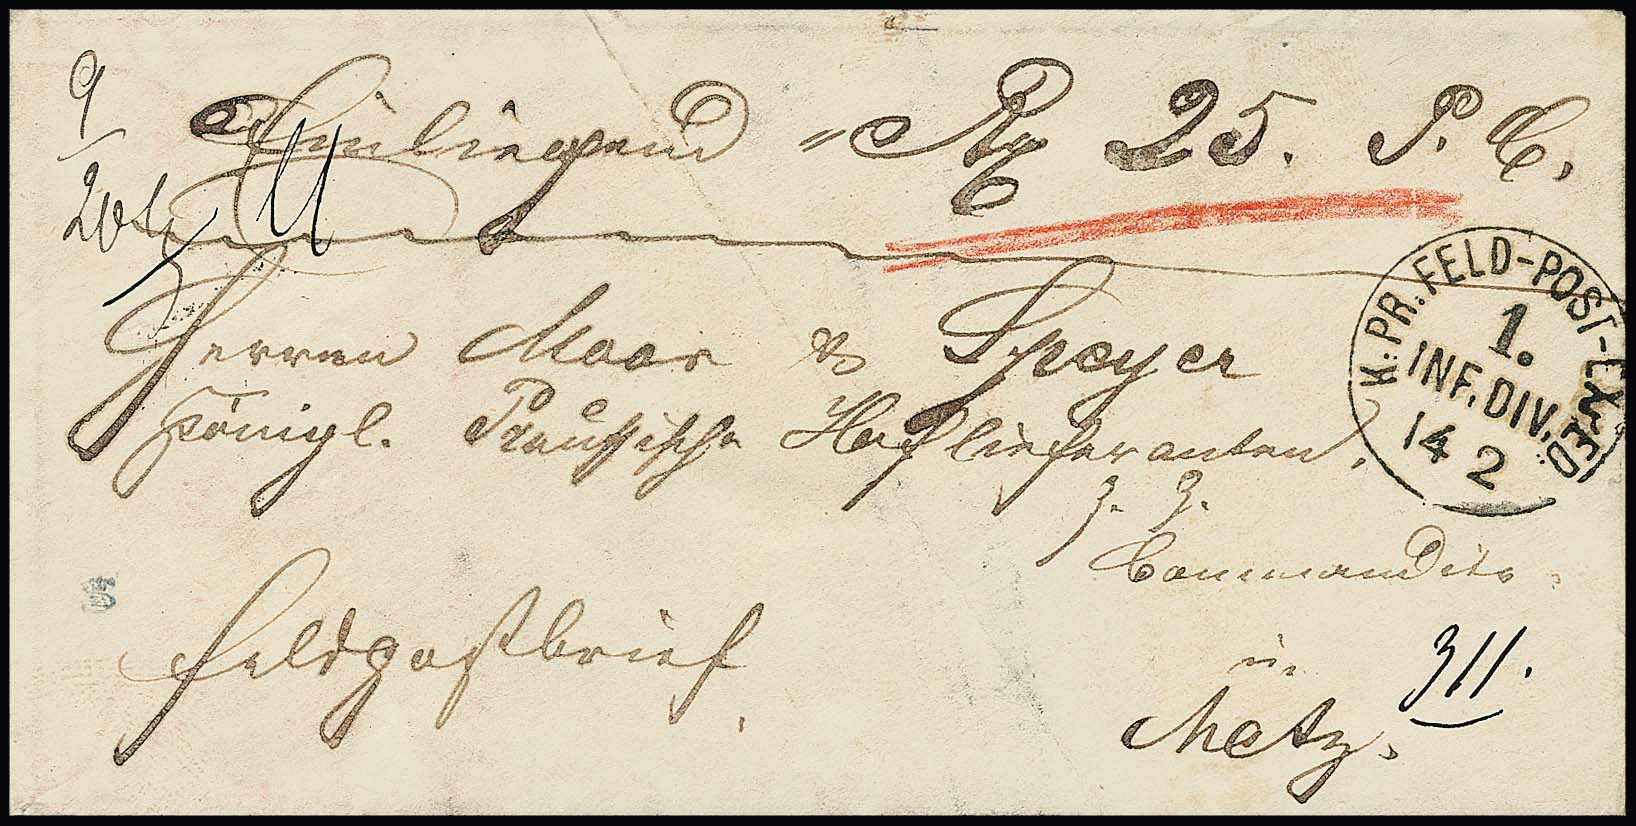 9
20
Einliegend " Rg 25. P. C.
Herren Maas & Speyer
Königl. Preußische Hoflieferanten,
z. Z.
Commandite
in
Metz.
Feldpostbrief
311.
K. PR. FELD-POST-EXPED. D.
1.
INF. DIV.
14 2